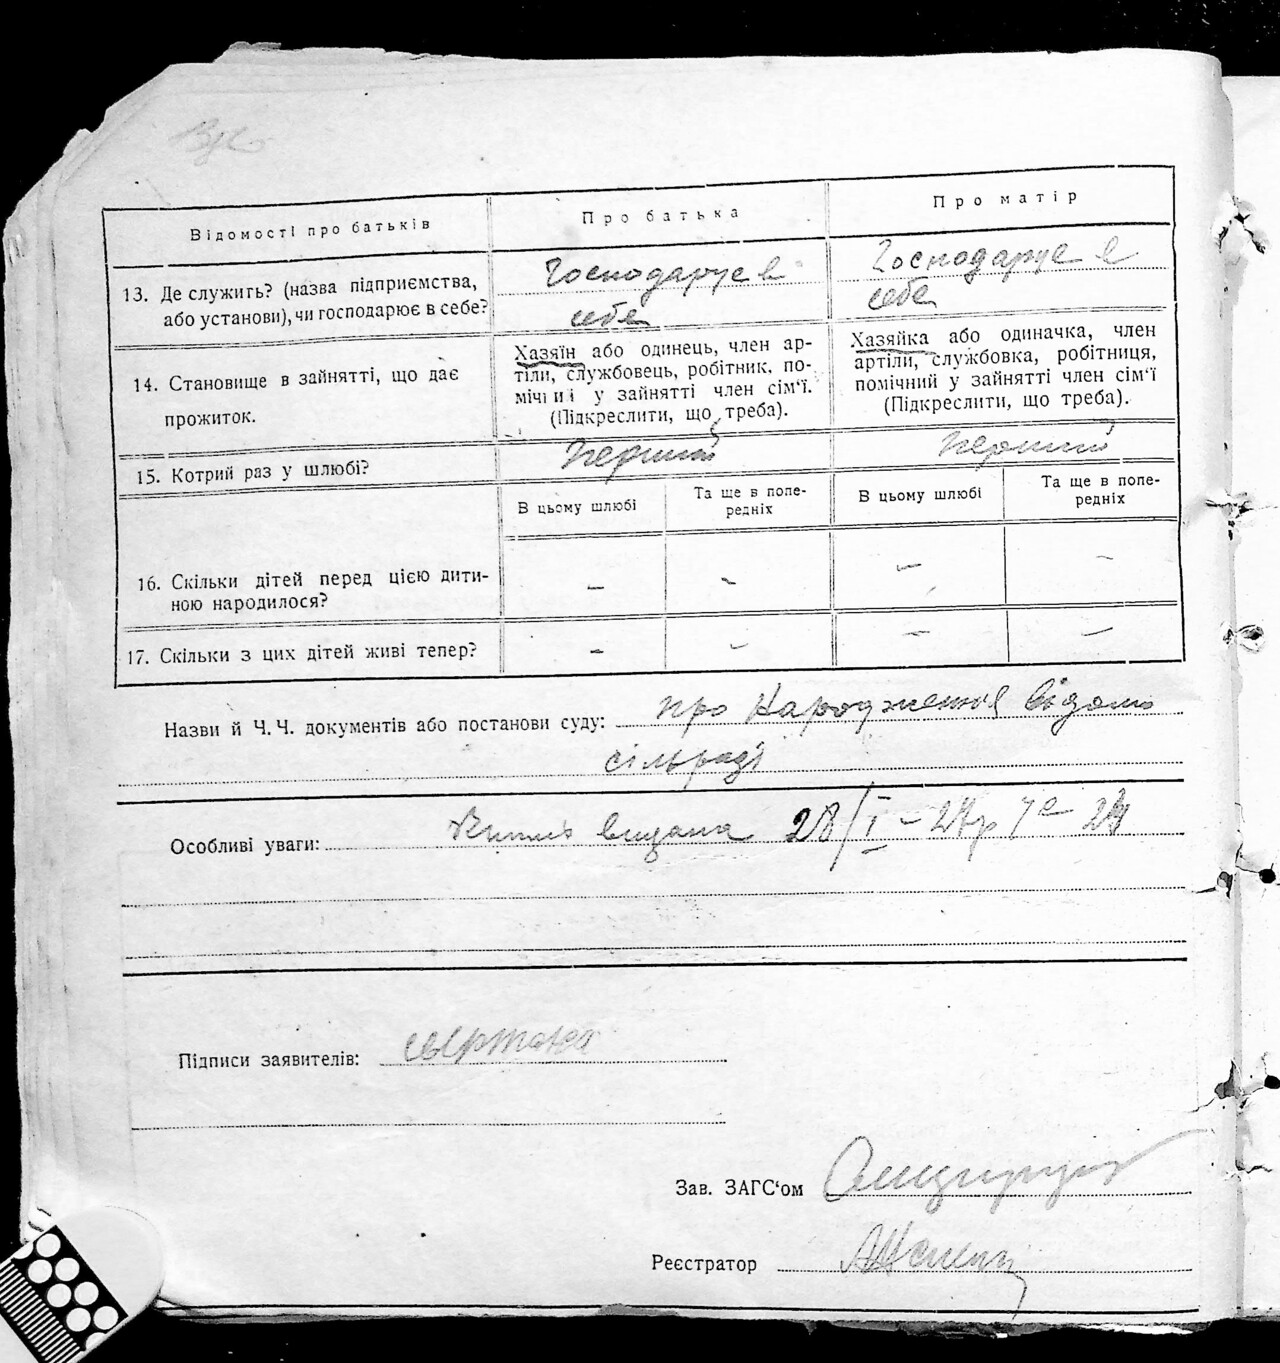 Відомості про батьків
Про батька
Про матір
13. Де служить? (назва підприємства,
або установи), чи господарює в себе?
Господарує в
себе
Господарує в
себе
14. Становище в зайнятті, що дає
прожиток.
Хазяїн або одинець, член ар-
тіли, службовець, робітник, по-
мічний у зайнятті член сім'ї.
(Підкреслити, що треба).
Хазяйка або одиначка, член
артіли, службовка, робітниця,
помічний у зайнятті член сім'ї
(Підкреслити, що треба).
15. Котрий раз у шлюбі?
Перший
Перший
В цьому шлюбі
Та ще в попе-
редніх
В цьому шлюбі
Та ще в попе-
редніх
16. Скільки дітей перед цією дити-
ною народилося?
–
–
–
–
17. Скільки з цих дітей живі тепер?
–
–
–
–
Назви й Ч. Ч. документів або постанови суду: про Народження Відомо
сільраді
Особливі уваги: видана 28/I – 27р
Підписи заявителів:
Зав. ЗАГС'ом
Реєстратор